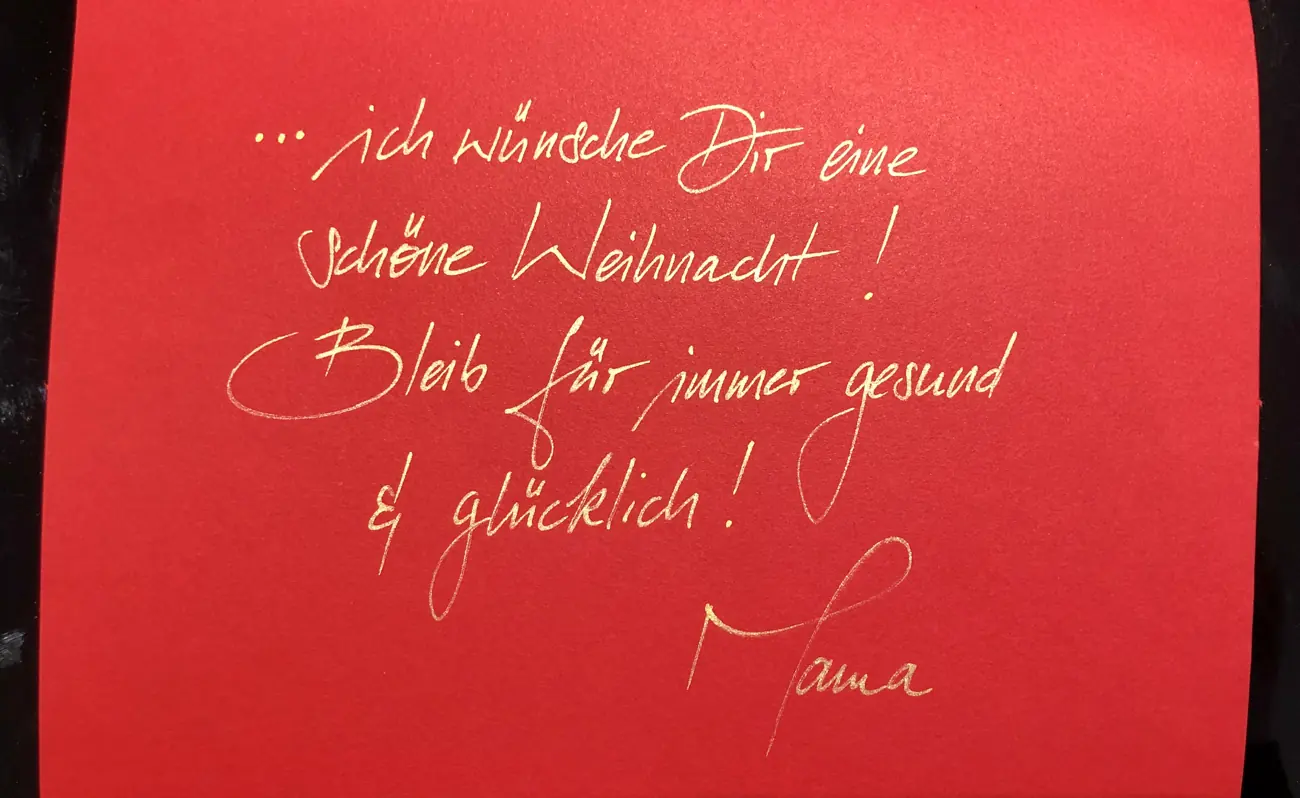 ... ich wünsche Dir eine
schöne Weihnacht!
Bleib für immer gesund
& glücklich!
Mama